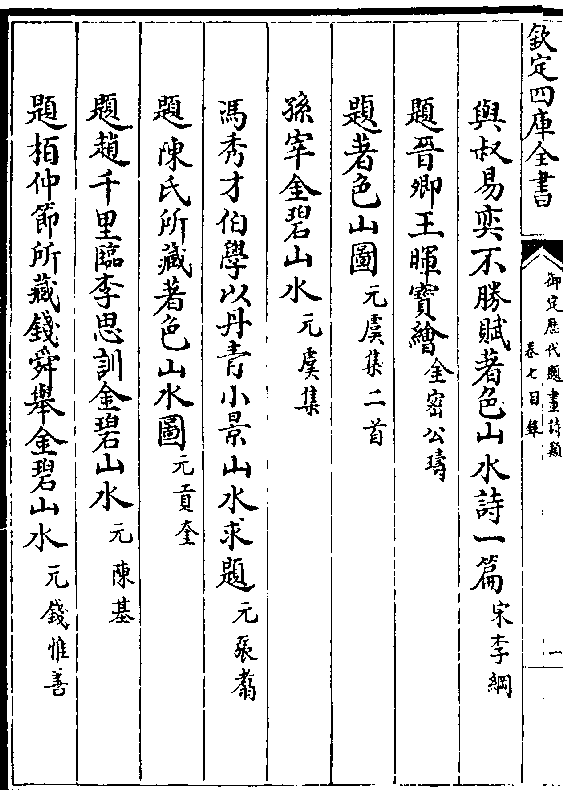 欽定四庫全書
御定歴代題畫詩類
卷七目録
一
與叔易奕不勝賦著色山水詩一篇 宋李綱
題晉卿王暉寶繪 金密公璹
題著色山圖 元虞集二首
孫宰金碧山水 元虞集
馮秀才伯學以丹青小景山水求題 元張翥
題陳氏所藏著色山水圖 元貢奎
題趙千里臨李思訓金碧山水 元陳基
題栢仲節所藏錢舜舉金碧山水 元錢惟善